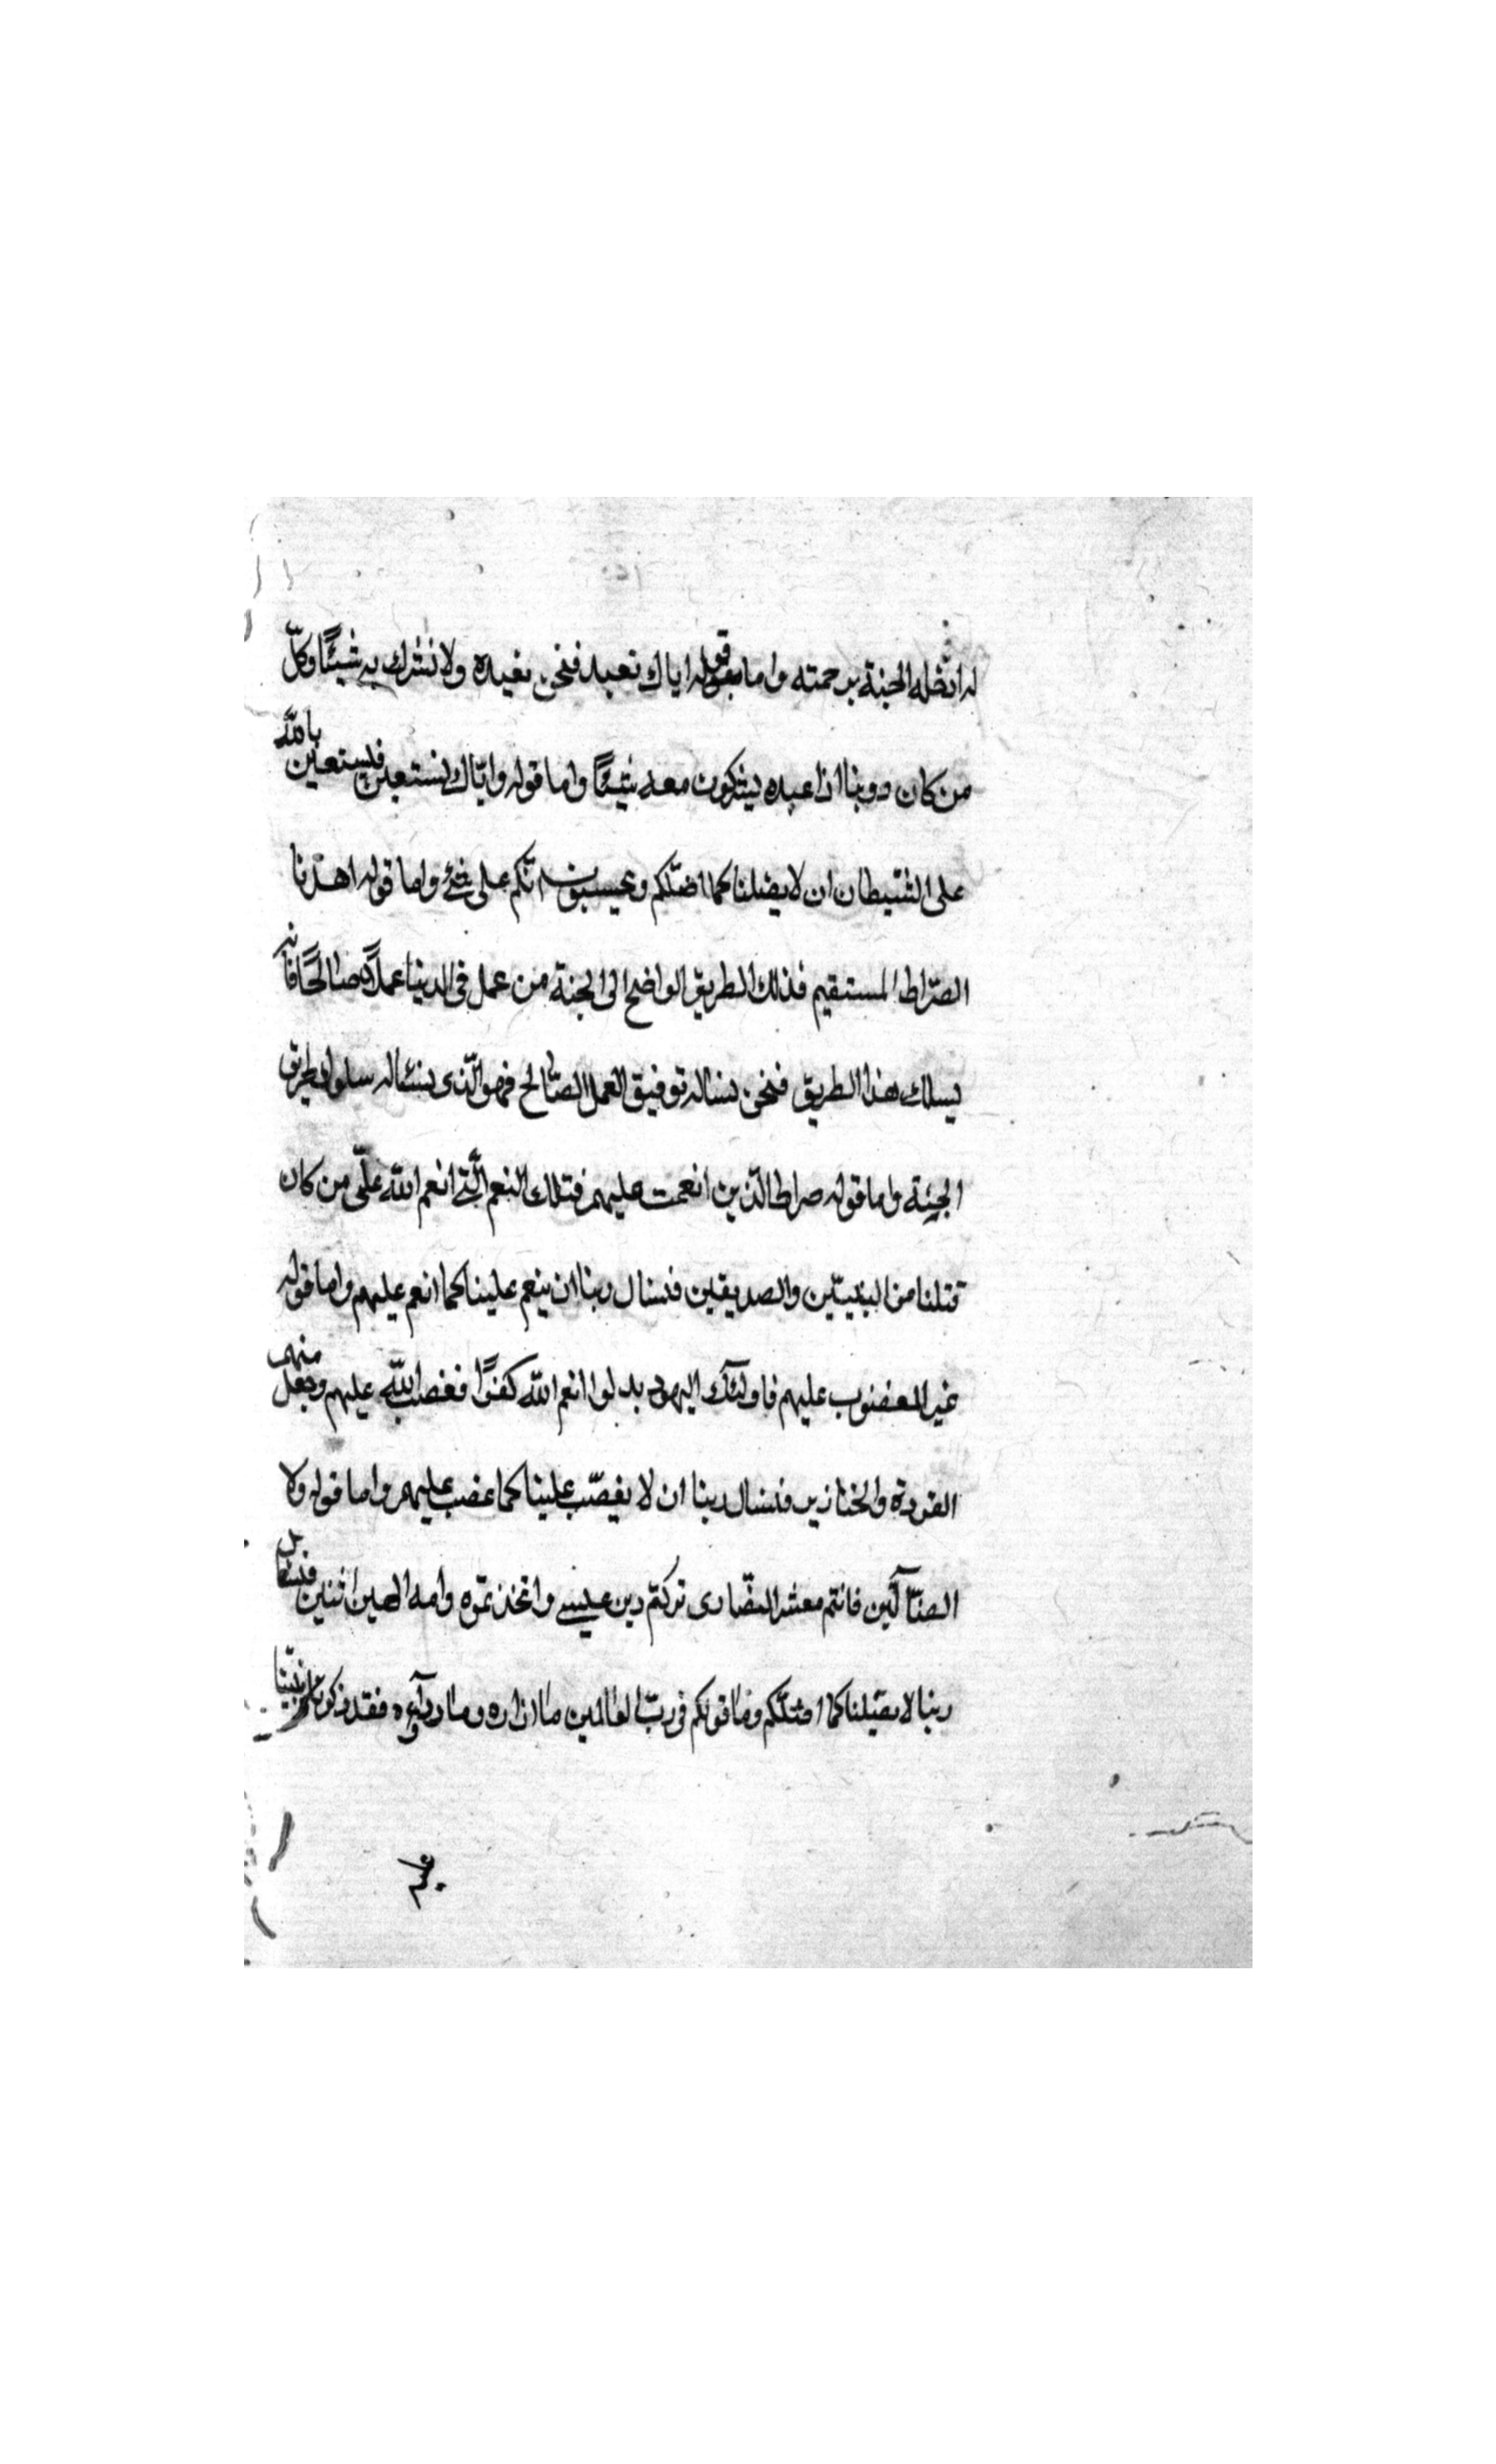 له ادخله الجنة برحمته واما قوله اياك نعبد فنحن نعبده ولا نشرك به شيئًا وكلّ
من كان دوننا اذا عبده يشركون معه شيئًا واما قوله وايّاك نستعين فنستعين بالله
على الشيطان ان لا يضلنا كما اضلّكم وتحسبون انّكم على شئ واما قوله اهدنا
الصّراط المستقيم فذلك الطريق الواضح الى الجنة من عمل فى الدنيا عملًا صالحًا فانه
يسلك هذا الطريق فنحن نساله توفيق العمل الصّالح فهو الّذى نسئاله سلوك طريق
الجنّة واما قوله صراط الّذين انعمت عليهم فتلك النعم الّتى انعم الله على من كان
قبلنا من النبيّين والصديقين فنسال ربنا ان ينعم علينا كما انعم عليهم واما قوله
غير المغضوب عليهم فاولئك اليهود بدلوا انعم الله كفرًا فغضب اللّه عليهم وجعل منهم
القردة والخنازير فنسال ربنا ان لا يغضب علينا كما غضب عليهم واما قوله ولا
الضّآلّين فانتم معشر النصّارى تركتم دين عيسى واتخذتموه وامه الهين اثنين فنسئل
ربنا لا يضلنا كما اضلّكم وما قولكم فى ربّ العالمين ما ازاره وما ردآؤه فقد ذكر نبيّنا